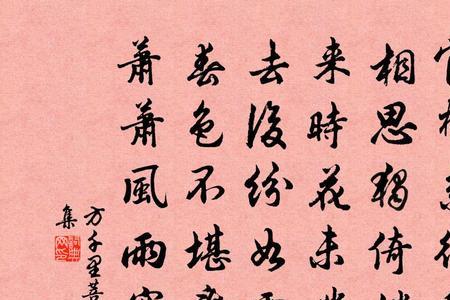 相思獨倚
來時花未
去後紛如
春色不堪
蕭蕭風雨
方千里菩
集